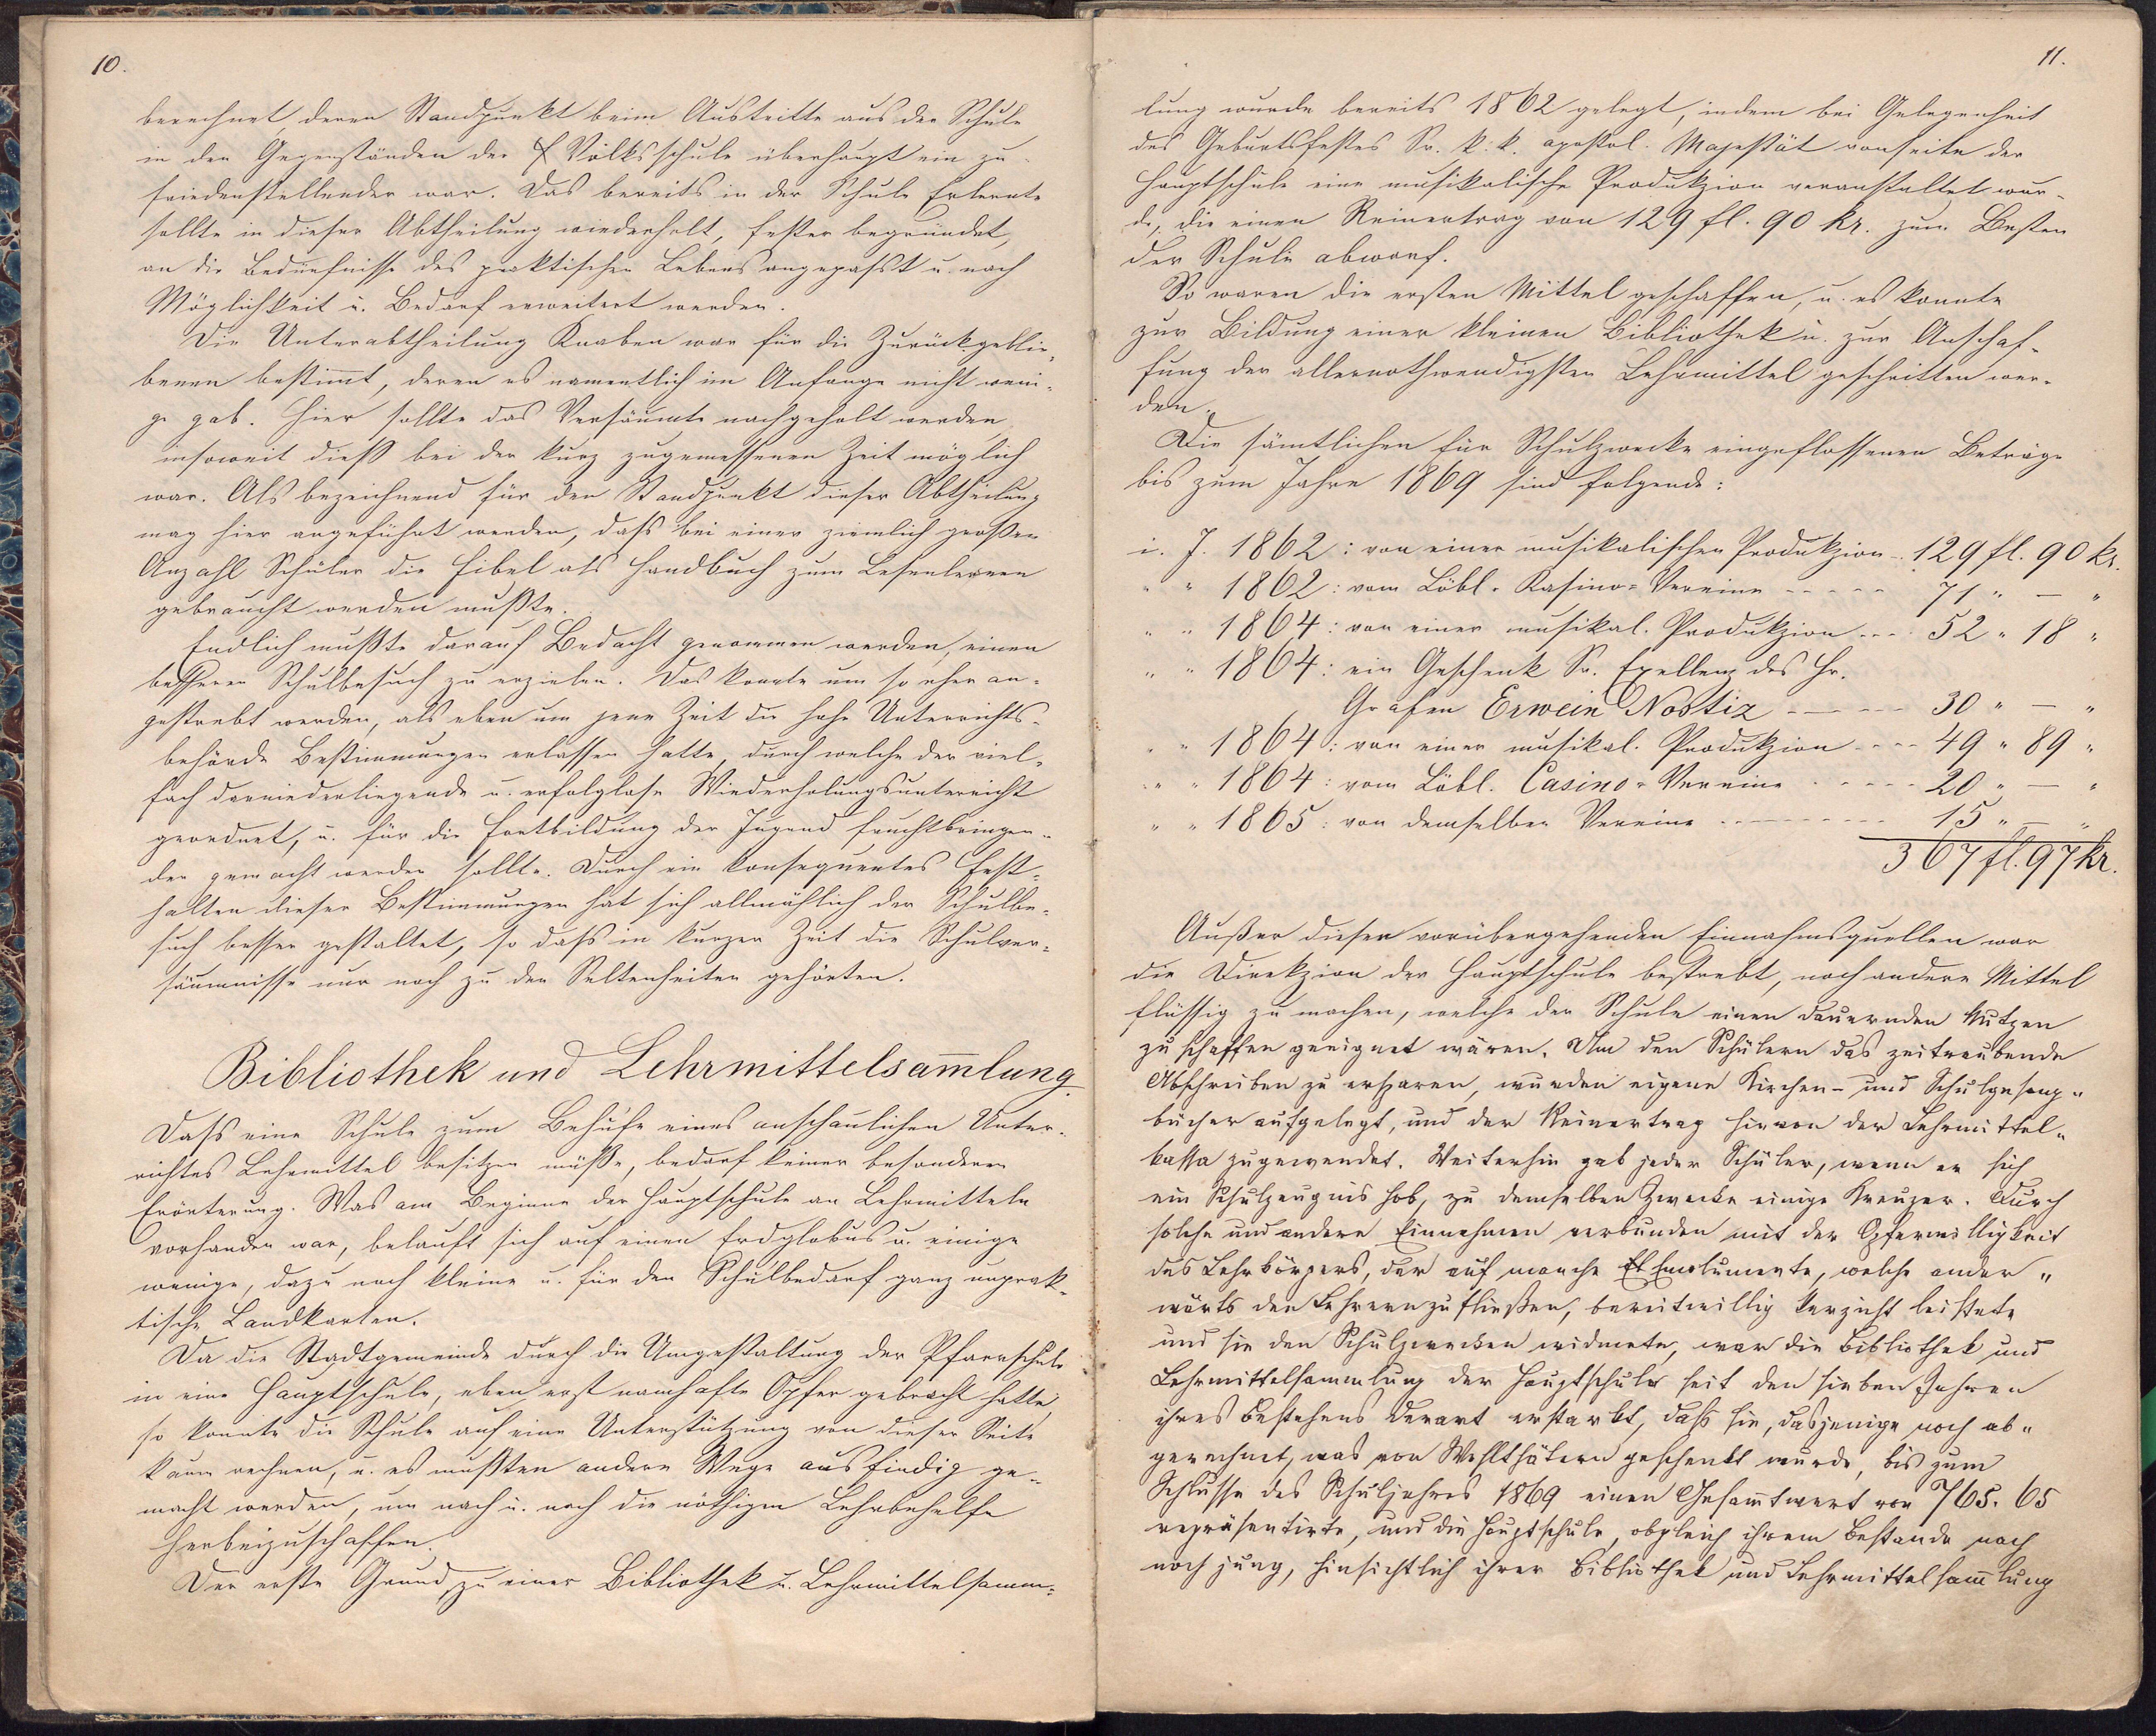 10.
berechnet, deren Standpunkt beim Austritte aus der Schule
in den Gegenständen der Volksschule überhaupt ein zu-
friedenstellender war. Das bereits in der Schule Erlernte
sollte in dieser Abtheilung wiederholt, fester begründet,
an die Bedürfnisse des praktischen Lebens angepaßt u. nach
Möglichkeit u. Bedarf erweitert werden.
Die Unterabtheilung Knaben war für die Zurückgeblie-
benen bestimt, deren es namentlich im Anfange nicht weni-
ge gab. Hier sollte das Versäumte nachgeholt werden
insoweit dieß bei der kurz zugemessenen Zeit möglich
war. Als bezeichnend für den Standpunkt dieser Abtheilung
mag hier angeführt werden, daß bei einer ziemlich großen
Anzahl Schüler die Fibel als Handbuch zum Lesenlernen
gebraucht werden mußte.
Endlich mußte darauf Bedacht genommen werden, einen
besseren Schulbesuch zu erzielen. Das konnte um so eher an-
gestrebt werden, als eben um jene Zeit die hohe Unterrichts-
behörde Bestimmungen erlassen hatte, durch welche der viel-
fach darniederliegende u. erfolglose Wiederholungsunterricht
geordnet, u. für die Fortbildung der Jugend fruchtbringen-
der gemacht werden sollte. Durch ein konsequentes Fest-
halten dieser Bestimmungen hat sich allmählich der Schulbe-
such besser gestaltet, so daß in kurzer Zeit die Schulver-
säumnisse nur noch zu den Seltenheiten gehörten.
Bibliothek und Lehrmittelsam̄lung.
Daß eine Schule zum Behufe eines anschaulichen Unter-
richtes Lehrmittel besitzen müße, bedarf keiner besonderen
Erörterung. Was am Beginne der Hauptschule an Lehrmitteln
vorhanden war, belauft sich auf einen Erdglobus u. einige
wenige, dazu noch kleine u. für den Schulbedarf ganz unprak-
tische Landkarten.
Da die Stadtgemeinde durch die Umgestaltung der Pfarrschule
in eine Hauptschule, eben erst namhafte Opfer gebracht hatte,
so konnte die Schule auf eine Unterstützung von dieser Seite
kaum rechnen, u. es mußten andere Wege ausfindig ge-
macht werden, um nach u. nach die nöthigen Lehrbehelfe
herbeizuschaffen.
Der erste Grund zu einer Bibliothek u. Lehrmittelsamm-
11.
lung wurde bereits 1862 gelegt, indem bei Gelegenheit
des Geburtsfestes Sr. k. k. apostol. Majestät vonseite der
Hauptschule eine musikalische Produkzion veranstaltet wur-
de, die einen Reinertrag von 129 fl. 90 kr. zum Besten
der Schule abwarf.
So waren die ersten Mittel geschaffen, u. es konnte
zur Bildung einer kleinen Bibliothek u. zur Anschaf-
fung der allernothwendigsten Lehrmittel geschritten wer-
den.
Die sämtlichen für Schulzwecke eingeflossenen Beträge
bis zum Jahre 1869 sind folgende:
i. J. 1862: von einer musikalischen Produkzion 129 fl. 90 kr.
" " 1862: vom Löbl. Kasino-Vereine ----- 71 " — "
" " 1864: von einer musikal. Produkzion --- 52 " 18 "
" " 1864: ein Geschenk Sr. Exellenz des Hr.
Grafen Erwein Nostiz ----- 30 " — "
" " 1864: von einer musikal. Produkzion ---- 49 " 89 "
" " 1864: vom Löbl. Casino-Vereine ----- 20 " — "
" " 1865: von demselben Vereine -------- 15 " — "
367 fl. 97 kr.
Außer dieser vorübergehenden Einnahmsquellen war
die Direkzion der Hauptschule bestrebt, noch andere Mittel
flüssig zu machen, welche der Schule einen dauernden Nutzen
zu schaffen geeignet wären. Um den Schülern das zeitraubende
Abschreiben zu ersparen, wurden eigene Kirchen- und Schulgesang-
bücher aufgelegt, und der Reinertrag hievon der Lehrmittel-
kassa zugewendet. Weiterhin gab jeder Schüler, wenn er sich
ein Schulzeugnis hob, zu demselben Zwecke einige Kreuzer. Durch
solche und andere Einnahmen verbunden mit der Opferwilligkeit
des Lehrkörpers, der auf manche Emolumente, welche ander-
wärts den Lehrern zufließen, bereitwillig Verzicht leistete
und sie den Schulzwecken widmete, war die Bibliothek und
Lehrmittelsammlung der Hauptschule seit den sieben Jahren
ihres Bestehens derart erstarkt, daß sie, dasjenige noch ab-
gerechnet, was von Wohlthätern geschenkt wurde, bis zum
Schlusse des Schuljahres 1869 einen Gesam̄twert von 765. 65
repräsentirte, und die Hauptschule, obgleich ihrem Bestande nach
noch jung, hinsichtlich ihrer Bibliothek und Lehrmittelsam̄lung